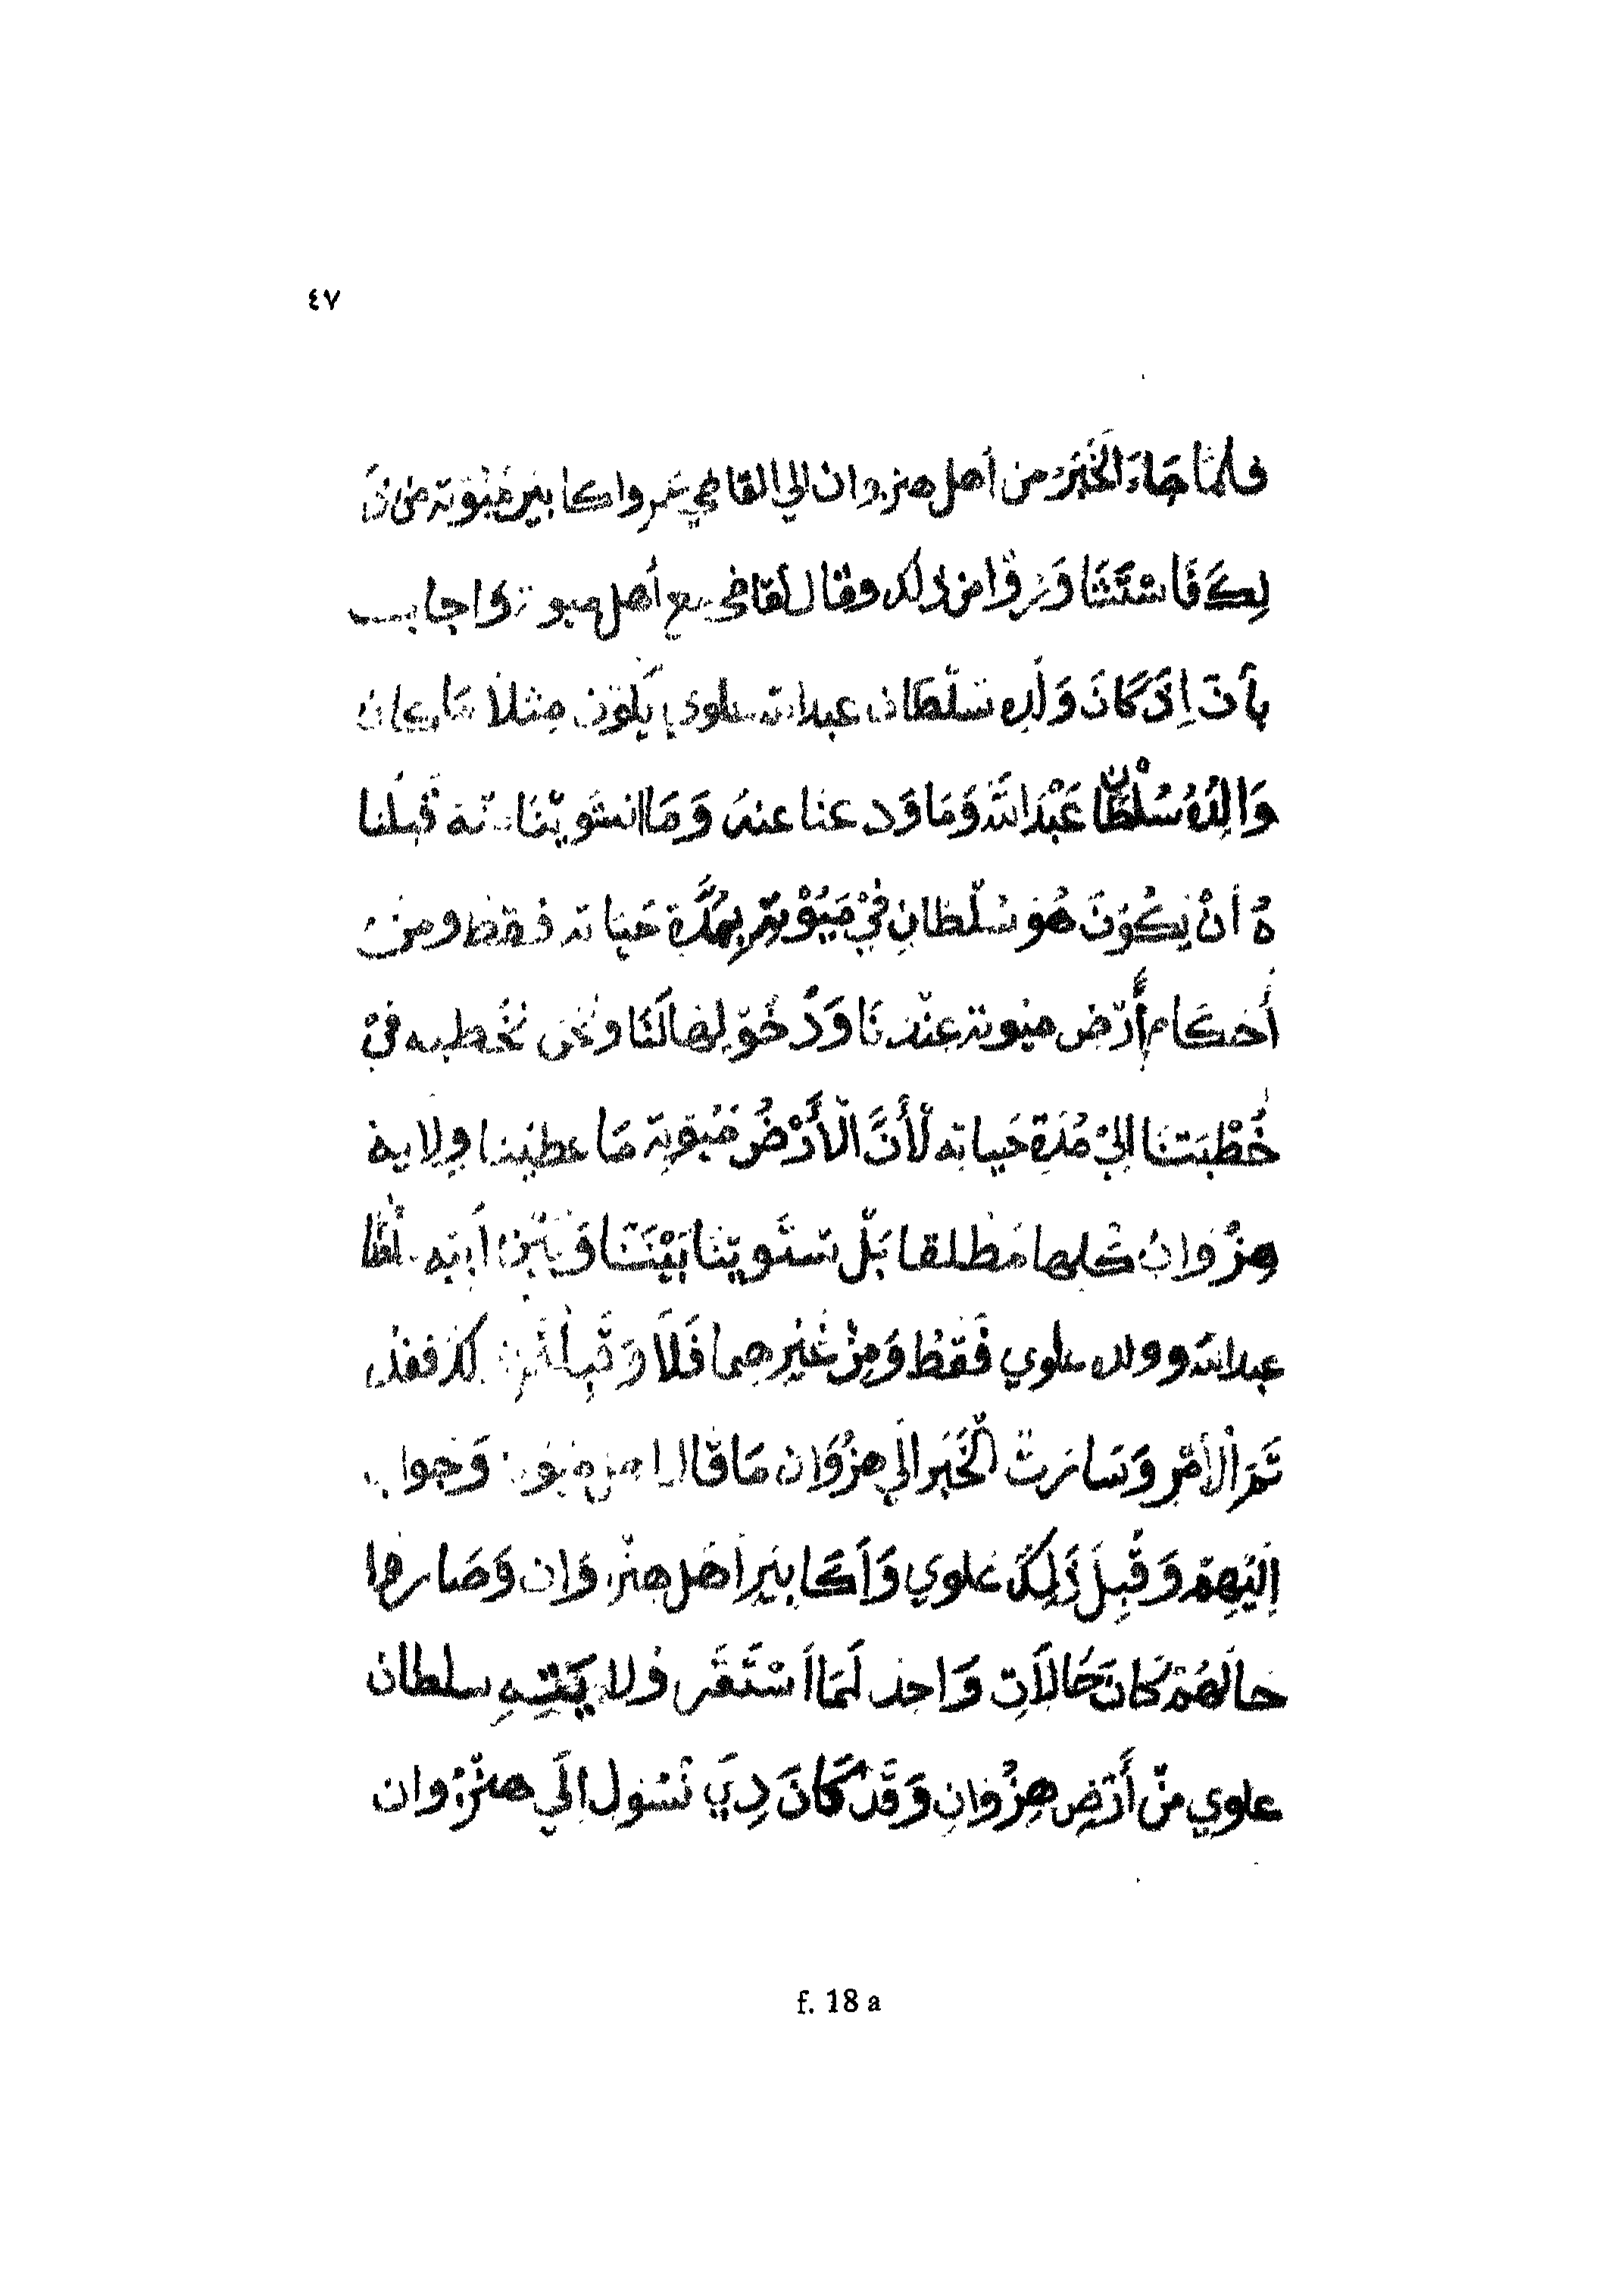 ٤٧
فلمّا جَاءَ الخَبَرُ من أهل هنزوان الي القاضي عَمر واكابير مَيُوتة من ذَ
لِكَ فَاسْتَشَاوَرُوا من ذلك وقال القاضي مع أهل ميوتة واجاب
بأَنَ اِذَ كَانَ وَلَده سَلْطَان عبدالله علوي يَكُوْن مِثلاً مَا كان
وَالِدُهُ سُلْطَانْ عَبْدَاللَّه وَمَا وَدعنا عنه وَمَا انشَوينَا قَبلنا
هُ أنْ يَكُوْنَ هُوَ سُلْطَانِ فِيْ مَيُوْتَة بِمُدَّة حَيَاته فقط ومن
أحكَام أَرْض ميوتة عِنْدنَا وَدُخُوْلِهَا لَنَا ونحن نخطبه فِيْ
خُطْبَتنَا الِيْ مُدَة حَياته لَأَنَّ الْأَرْضُ مَيُوتة مَا عطيْنا ولاية
هِنزُوَان كُلها مَطْلقا بَلْ تسَويتنا بَيْنَنَا وَبَيْن أبيه سلطا
عبدالله وولده علوي فَقَطْ وَمِنْ غَيْرهما فَلَا
تَمَ الْأَمْر وَسَارتْ الْخَبَر الَي هنزُوَان مَا قَال من ميوت وَجواب
اِلَيْهِمْ وَقَبِلَ ذَلِكَ علوي وَأَكَابير أهل هنزوَان وَصَاروا
حَالهُمْ كَان حَالَات وَاحد لَمَا اَسْتَقَر سلطان
علوي مِنْ أَرْض هِنزُوَانِ وَقَدْ كَانَ دِيَي نَسُول اِلَي هنزُوان
f. 18 a